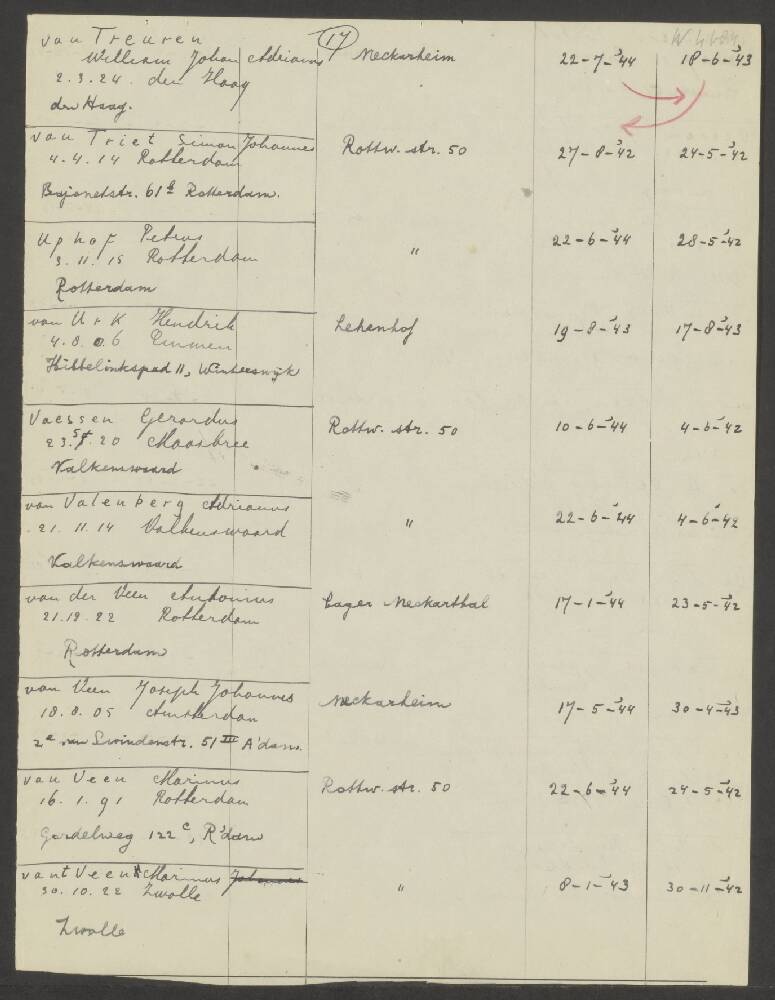 van Treuren (17)
William Johan Adrianus Neckarheim 22-7-'44 18-6-'43
2.3.24. den Haag
den Haag.
van Triet Simon Johannes Rottw. str. 50 27-8-'42 24-5-'42
4.4.14 Rotterdam
Bajonetstr. 61 Rotterdam.
Uphof Petrus " 22-6-'44 28-5-'42
3.11.15 Rotterdam
Rotterdam
van Urk Hendrik Lehenhof 19-8-'43 17-8-'43
4.8.06 Emmen
Hibbelinkspad 11, Winterswijk
Vaessen Gerardus Rottw. str. 50 10-6-'44 4-6-'42
23.5.20 Maasbree
Valkenswaard
van Valenberg Adrianus " 22-6-'44 4-6-'42
21.11.14 Valkenswaard
Valkenswaard
van der Veen Antonius Lager Neckarthal 17-1-'44 23-5-'42
21.12.22 Rotterdam
Rotterdam
van Veen Joseph Johannes Neckarheim 17-5-'44 30-4-'43
18.8.05 Amsterdam
2e van Swindenstr. 51 III A'dam.
van Veen Marinus Rottw. str. 50 22-6-'44 24-5-'42
16.1.91 Rotterdam
Gordelweg 122 c, R'dam
van 't Veen Marinus Johannes " 8-1-'43 30-11-'42
30.10.22 Zwolle
Zwolle